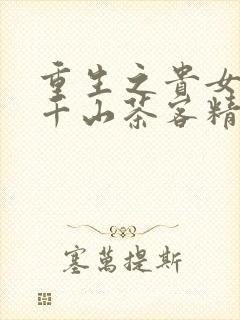 重生之貴女
千山茶客精
塞萬提斯